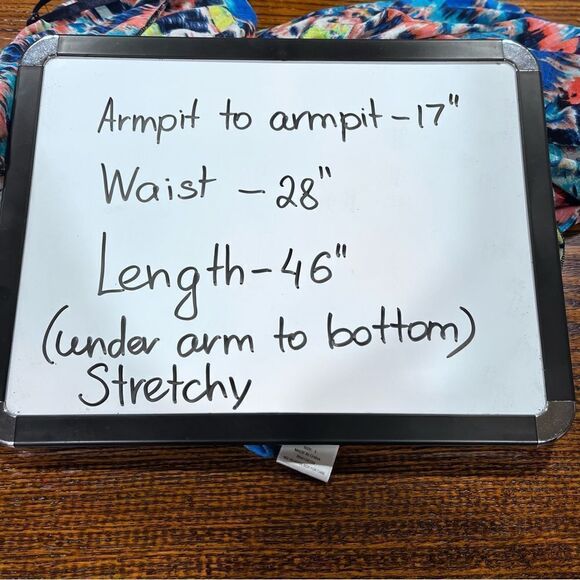 Armpit to armpit - 17"
Waist - 28"
Length - 46"
(under arm to bottom)
Stretchy